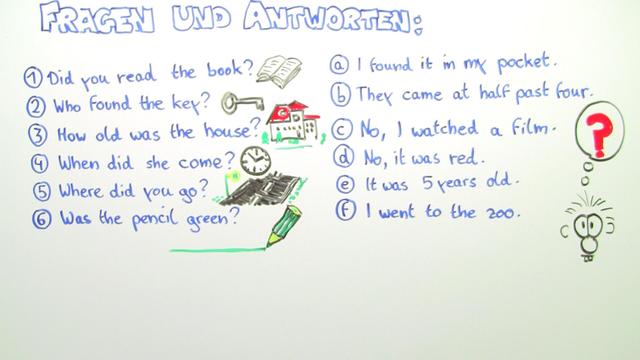 FRAGEN UND ANTWORTEN:
① Did you read the book?
② Who found the key?
③ How old was the house?
④ When did she come?
⑤ Where did you go?
⑥ Was the pencil green?
ⓐ I found it in my pocket.
ⓑ They came at half past four.
ⓒ No, I watched a film.
ⓓ No, it was red.
ⓔ It was 5 years old.
ⓕ I went to the zoo.
?